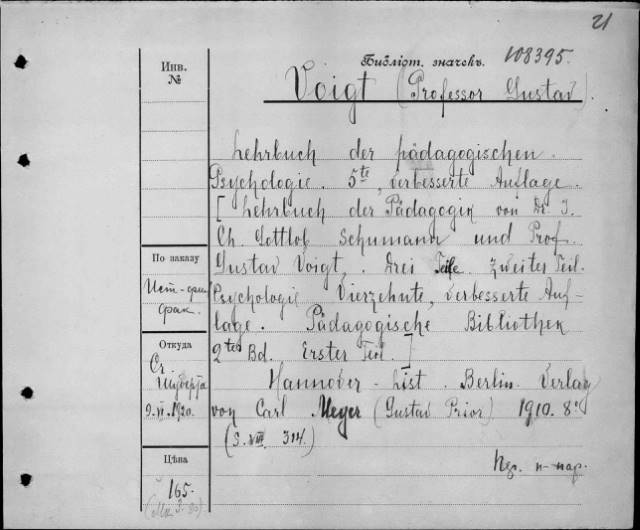 21
Библіот. значекъ. 108395.
Инв.
№
Voigt (Professor Gustav).
Lehrbuch der pädagogischen.
Psychologie. 5te, verbesserte Auflage.
[Lehrbuch der Pädagogik von Dr. J.
Ch. Gottlob Schumann und Prof.
По заказу
Gustav Voigt. Drei Teile. Zweiter Teil.
Ист-
фак.
Psychologie Vierzehnte, verbesserte Auf-
lage. Pädagogische Bibliothek
Откуда
2ter Bd. Erster Teil.]
От
Шуберта
9.VI.1920.
Hannover-List. Berlin. Verlag
von Carl Meyer (Gustav Prior) 1910. 8º
VIII. 314.)
Цѣна
165.